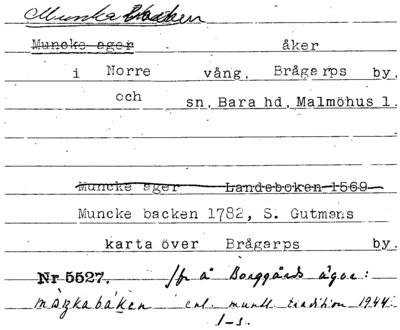 Munkabacken
Muncke ager åker
i Norre vång, Brågarps by.
och sn. Bara hd. Malmöhus l.
Muncke ager Landeboken 1569
Muncke backen 1782, S. Gutmans
karta över Brågarps by.
Nr 5527. /fr å Borggårds ägor:
enl. muntl. tradition 1944.